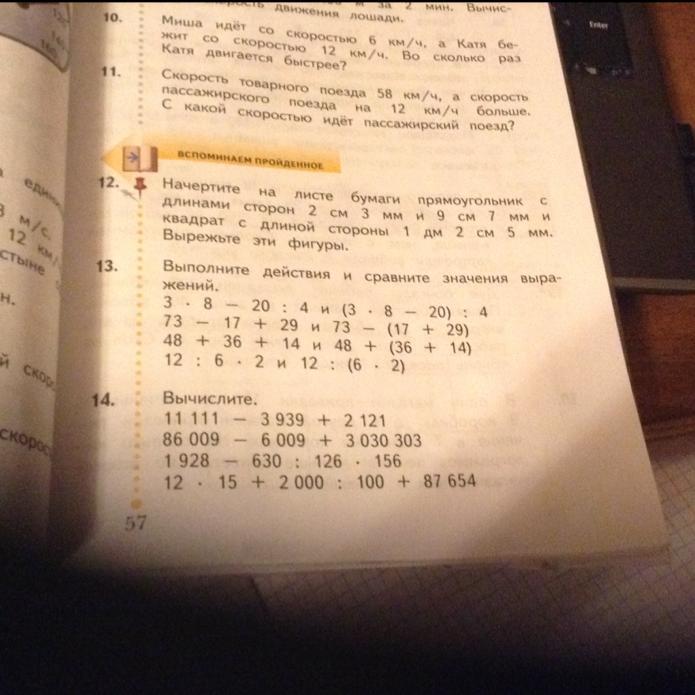 движения лошади.
за 2 мин. Вычис-
10. Миша идёт со скоростью 6 км/ч, а Катя бе-
жит со скоростью 12 км/ч. Во сколько раз
Катя двигается быстрее?
11. Скорость товарного поезда 58 км/ч, а скорость
пассажирского поезда на 12 км/ч больше.
С какой скоростью идёт пассажирский поезд?
ВСПОМИНАЕМ ПРОЙДЕННОЕ
12. Начертите на листе бумаги прямоугольник с
длинами сторон 2 см 3 мм и 9 см 7 мм и
квадрат с длиной стороны 1 дм 2 см 5 мм.
Вырежьте эти фигуры.
13. Выполните действия и сравните значения выра-
жений.
3 · 8 − 20 : 4 и (3 · 8 − 20) : 4
73 − 17 + 29 и 73 − (17 + 29)
48 + 36 + 14 и 48 + (36 + 14)
12 : 6 · 2 и 12 : (6 · 2)
14. Вычислите.
11 111 − 3 939 + 2 121
86 009 − 6 009 + 3 030 303
1 928 − 630 : 126 · 156
12 · 15 + 2 000 : 100 + 87 654
57
Enter